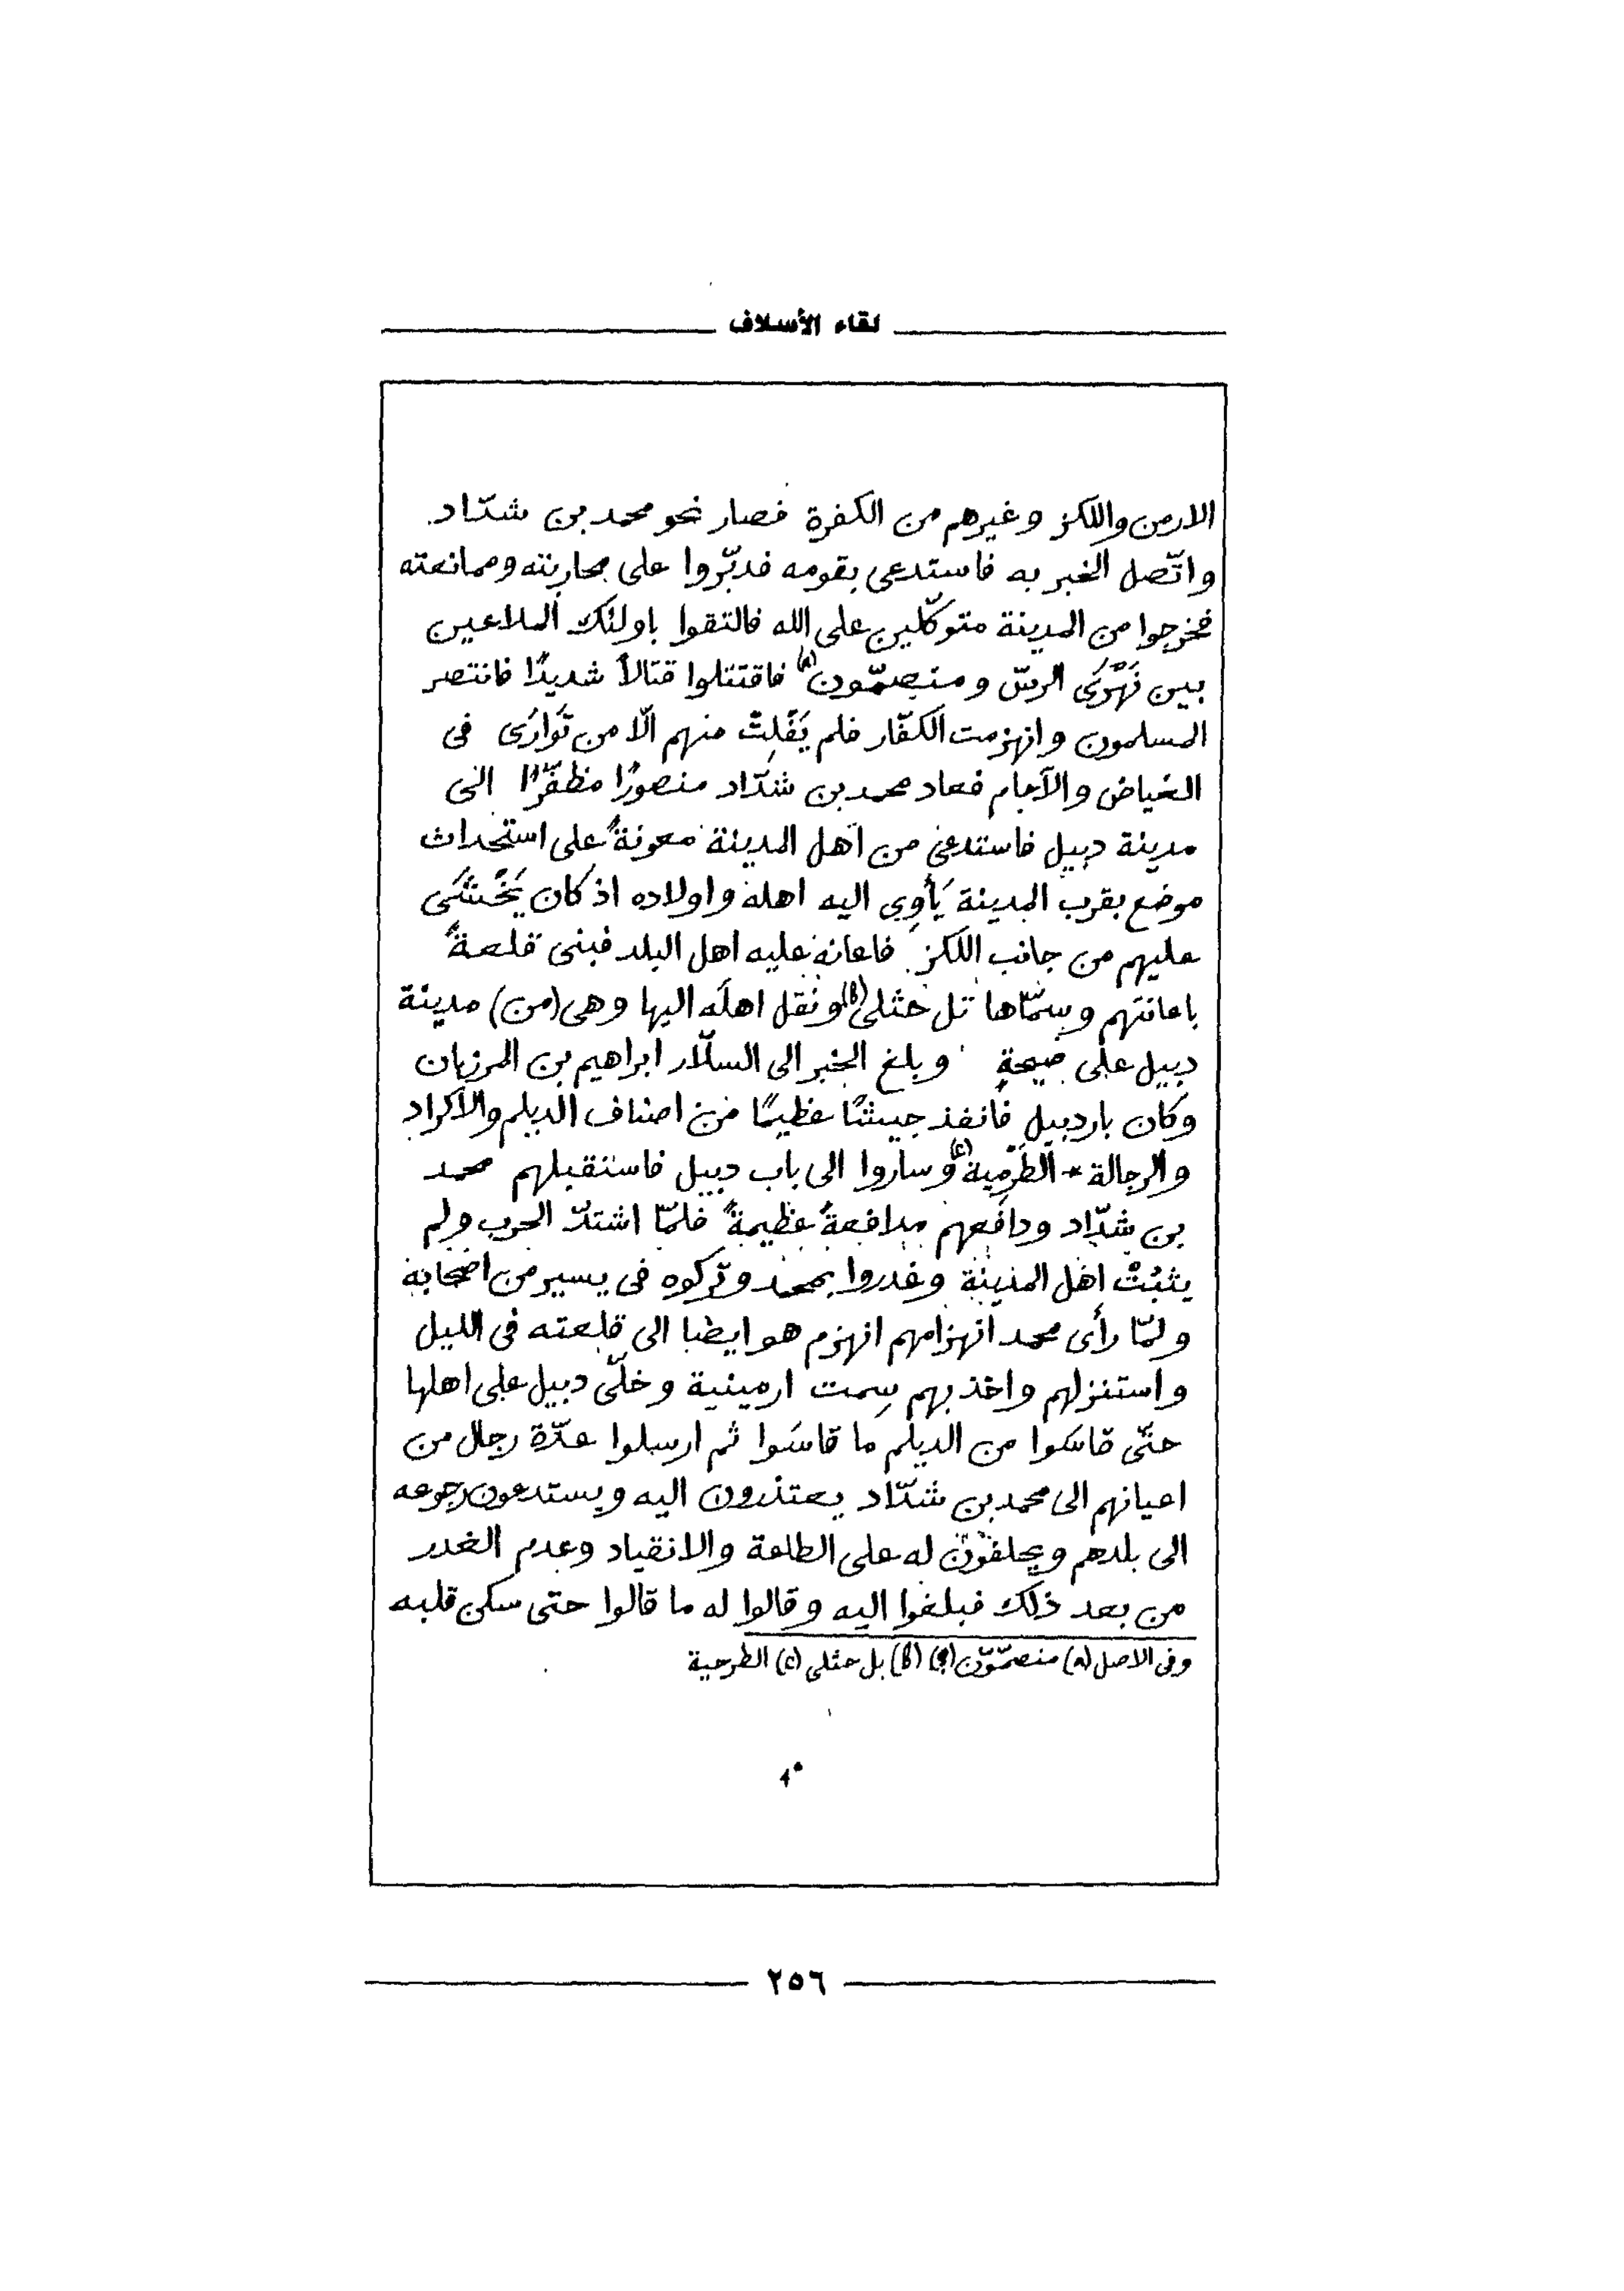 لقاء الأسلاف
الارمن واللكز وغيرهم من الكفرة فصار نحو محمد بن شدّاد.
واتّصل الخبر به فاستدعى بقومه فدبّروا على محاربته وممانعته
فخرجوا من المدينة متوكّلين على الله فالتقوا باولئك الملاعين
بين نَهْرَى الرسّ و منصمّون(a) فاقتتلوا قتالاً شديدًا فانتصر
المسلمون وانهزمت الكفّار فلم يَفْلِتْ منهم الّا من تَوارَى فى
الغياض والآجام فعاد محمد بن شدّاد منصورًا مظفّرًا الى
مدينة دبيل فاستدعى من اهل المدينة معونةً على استحداث
موضع بقرب المدينة يَأوِى اليه اهله واولاده اذ كان يَخْشَى
عليهم من جانب اللكز فاعانه عليه اهل البلد فبنى قلعةً
باعانتهم وسمّاها تل حثلى(b) ونقل اهلَه اليها وهى (من) مدينة
دبيل على صيحةٍ وبلغ الخبر الى السلّار ابراهيم بن المرزبان
وكان باردبيل فانفذ جيشًا عظيمًا من اصناف الديلم والاكراد
والرجالة * الطَرْمية(c) وساروا الى باب دبيل فاستقبلهم محمد
بن شدّاد ودافعهم مدافعةً عظيمةً فلمّا اشتدّ الحرب ولم
يثبُتْ اهل المدينة وغدروا بمحمد وتركوه فى يسير من اصحابه
ولمّا رأى محمد انهزامهم انهزم هو ايضا الى قلعته فى الليل
واستنزلهم واخذ بهم سِمت ارمينية وخلّى دبيل على اهلها
حتّى قاسَوا من الديلم ما قاسَوا ثم ارسلوا عدّة رجال من
اعيانهم الى محمد بن شدّاد يعتذرون اليه ويستدعون رجوعه
الى بلدهم ويحلفون له على الطاعة والانقياد وعدم الغدر
من بعد ذلك فبلغوا اليه وقالوا له ما قالوا حتى سكن قلبه
وفى الاصل (a) منصمّوّن (؟) (b) بل حثلى (c) الطرحية
٢٥٦